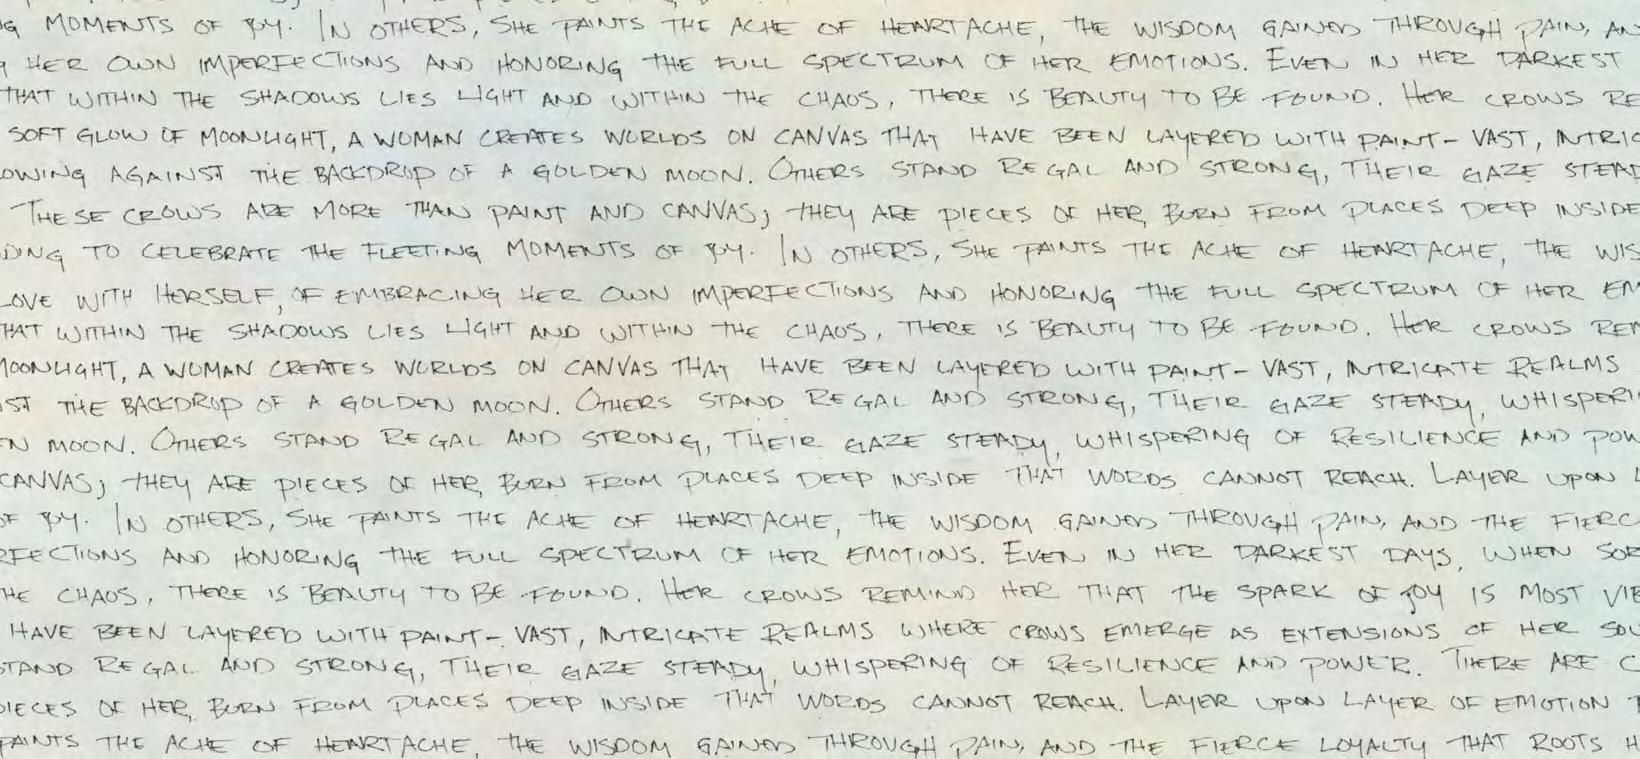 G MOMENTS OF JOY. IN OTHERS, SHE PAINTS THE ACHE OF HEARTACHE, THE WISDOM GAINED THROUGH PAIN, AN
G HER OWN IMPERFECTIONS AND HONORING THE FULL SPECTRUM OF HER EMOTIONS. EVEN IN HER DARKEST
THAT WITHIN THE SHADOWS LIES LIGHT AND WITHIN THE CHAOS, THERE IS BEAUTY TO BE FOUND. HER CROWS RE
SOFT GLOW OF MOONLIGHT, A WOMAN CREATES WORLDS ON CANVAS THAT HAVE BEEN LAYERED WITH PAINT- VAST, INTRIC
OWING AGAINST THE BACKDROP OF A GOLDEN MOON. OTHERS STAND REGAL AND STRONG, THEIR GAZE STEAD
THESE CROWS ARE MORE THAN PAINT AND CANVAS; THEY ARE PIECES OF HER, BORN FROM PLACES DEEP INSIDE
DING TO CELEBRATE THE FLEETING MOMENTS OF JOY. IN OTHERS, SHE PAINTS THE ACHE OF HEARTACHE, THE WIS
LOVE WITH HERSELF, OF EMBRACING HER OWN IMPERFECTIONS AND HONORING THE FULL SPECTRUM OF HER EM
HAT WITHIN THE SHADOWS LIES LIGHT AND WITHIN THE CHAOS, THERE IS BEAUTY TO BE FOUND. HER CROWS REM
MOONLIGHT, A WOMAN CREATES WORLDS ON CANVAS THAT HAVE BEEN LAYERED WITH PAINT- VAST, INTRICATE REALMS
ST THE BACKDROP OF A GOLDEN MOON. OTHERS STAND REGAL AND STRONG, THEIR GAZE STEADY, WHISPERI
EN MOON. OTHERS STAND REGAL AND STRONG, THEIR GAZE STEADY, WHISPERING OF RESILIENCE AND POW
CANVAS; THEY ARE PIECES OF HER, BORN FROM PLACES DEEP INSIDE THAT WORDS CANNOT REACH. LAYER UPON L
OF JOY. IN OTHERS, SHE PAINTS THE ACHE OF HEARTACHE, THE WISDOM GAINED THROUGH PAIN, AND THE FIERC
RFECTIONS AND HONORING THE FULL SPECTRUM OF HER EMOTIONS. EVEN IN HER DARKEST DAYS, WHEN SOR
HE CHAOS, THERE IS BEAUTY TO BE FOUND. HER CROWS REMIND HER THAT THE SPARK OF JOY IS MOST VIB
HAVE BEEN LAYERED WITH PAINT- VAST, INTRICATE REALMS WHERE CROWS EMERGE AS EXTENSIONS OF HER SOU
STAND REGAL AND STRONG, THEIR GAZE STEADY, WHISPERING OF RESILIENCE AND POWER. THERE ARE C
PIECES OF HER, BORN FROM PLACES DEEP INSIDE THAT WORDS CANNOT REACH. LAYER UPON LAYER OF EMOTION
PAINTS THE ACHE OF HEARTACHE, THE WISDOM GAINED THROUGH PAIN, AND THE FIERCE LOYALTY THAT ROOTS H